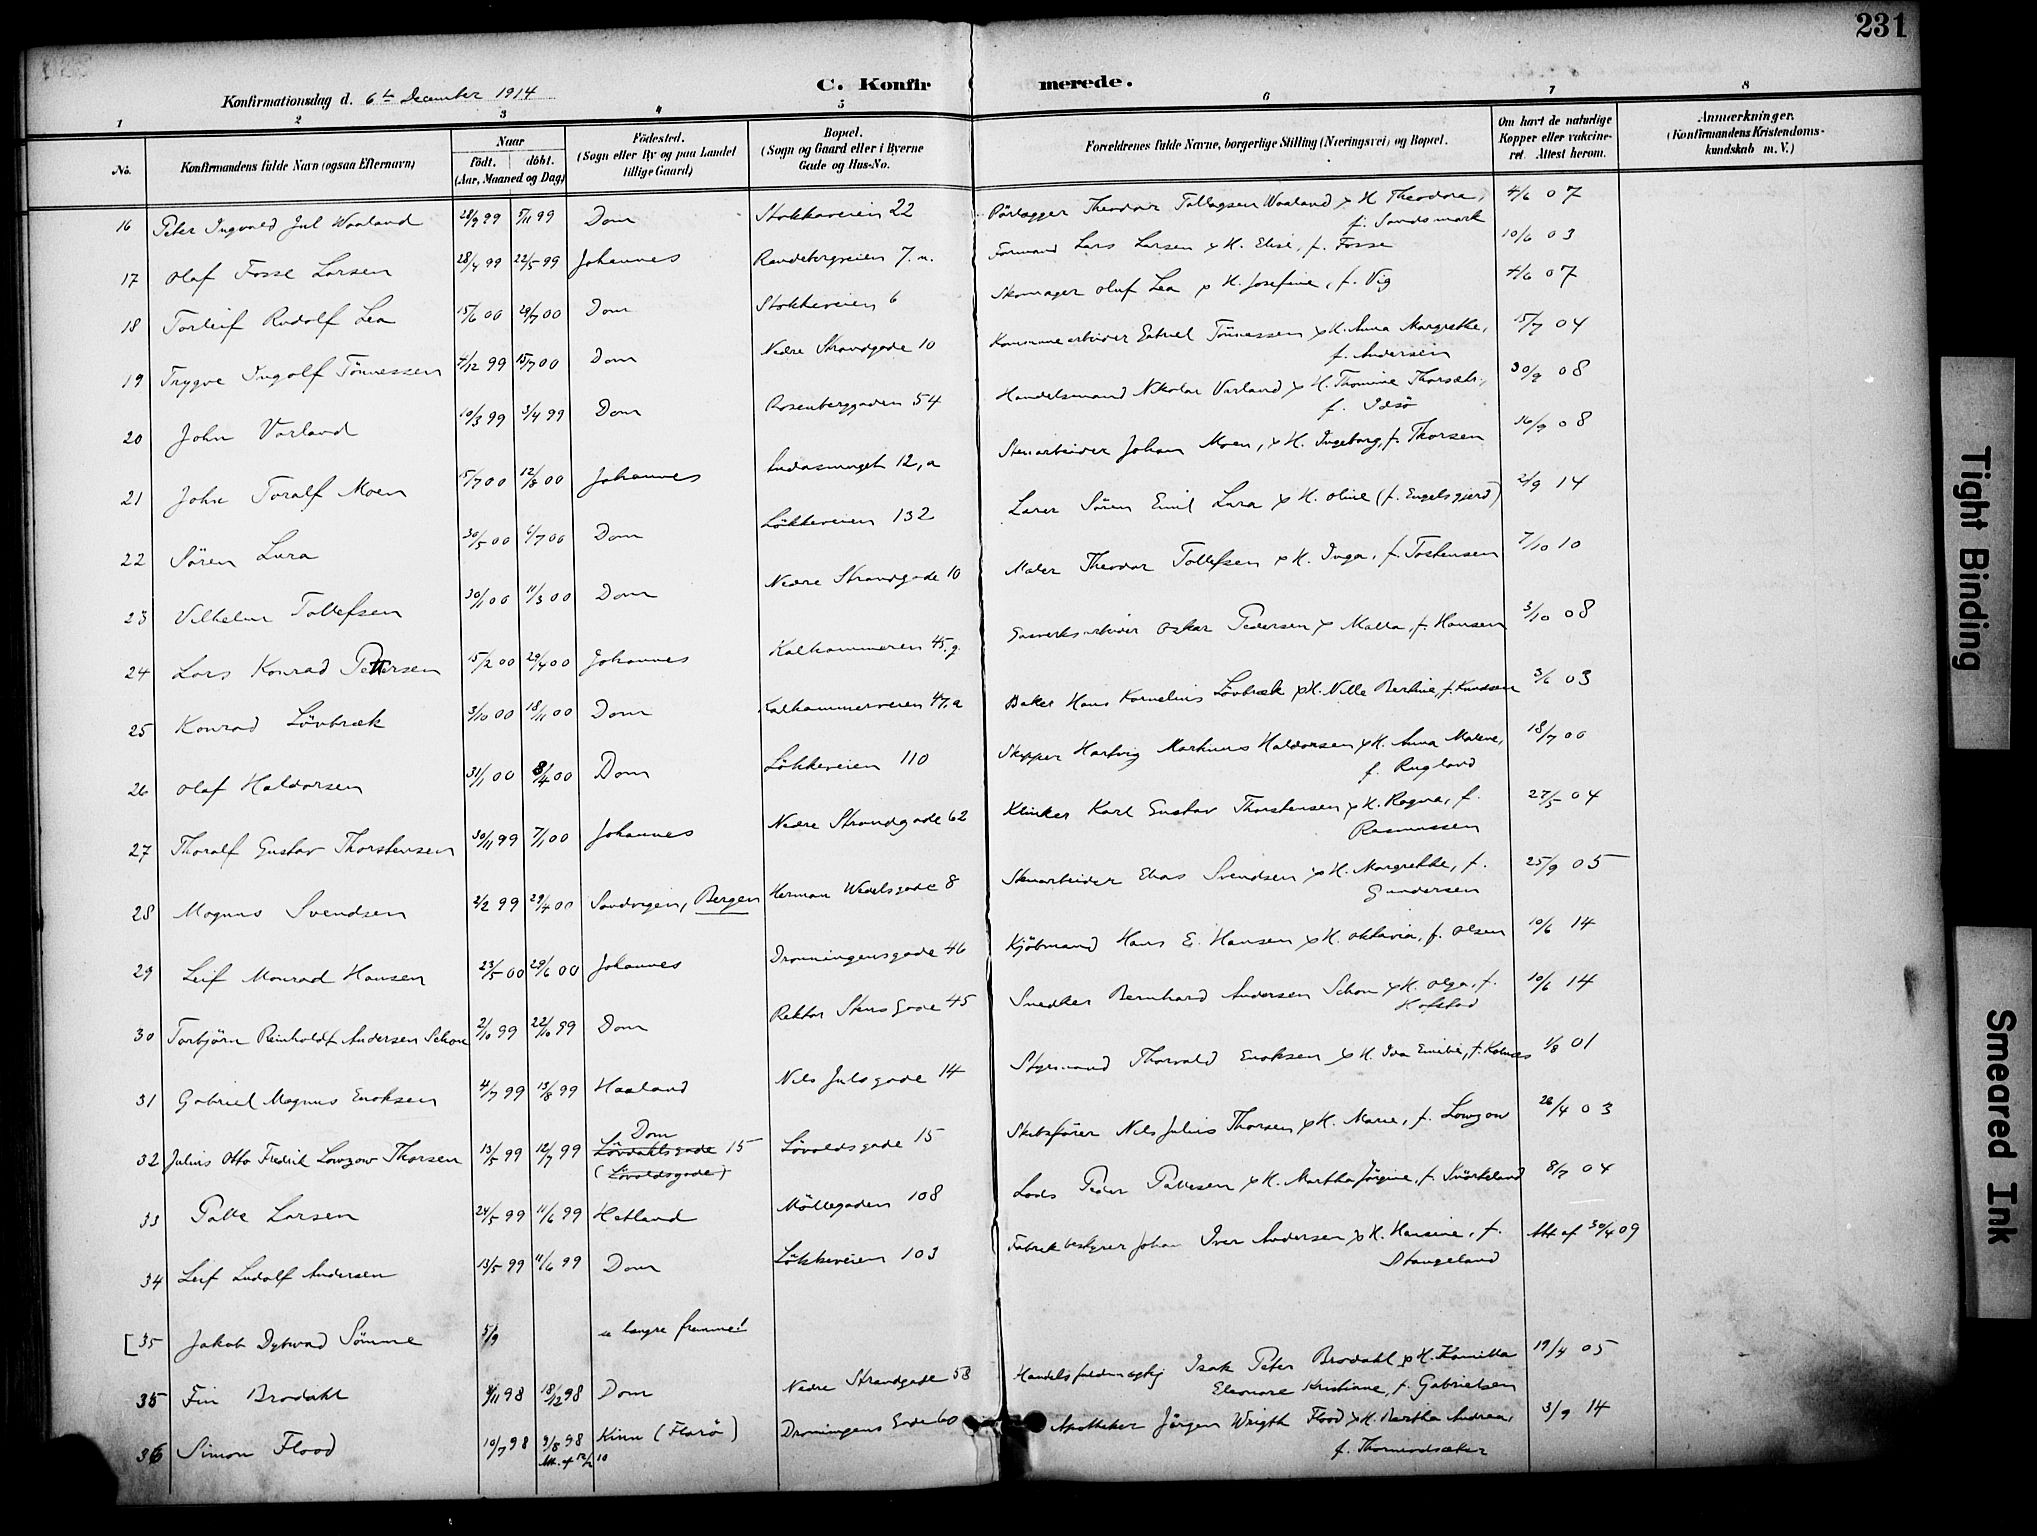 231
Konfirmationsdag d. 6te December 1914
C. Konfir merede.
1 2 3 4 5 6 7 8
No.
Konfirmandens fulde Navn (ogsaa Efternavn)
Naar
födt. döbt.
(Aar, Maaned og Dag)
Födested.
(Sogn eller By og paa Landet
tillige Gaard)
Bopæl.
(Sogn og Gaard eller i Byerne
Gade og Hus-No.
Forældrenes fulde Navne, borgerlige Stilling (Næringsvei) og Bopæl.
Om havt de naturlige
Kopper eller vakcine-
ret. Attest herom.
Anmærkninger.
(Konfirmandens Kristendoms-
kundskab m. V.)
16 Peter Ingvald Jul Waaland 28/9 99 5/11 99 Dom Stokkaveien 22 Theodor Tollagsen Waaland & H. Theodora, 4/6 07
f. Sandsmark
17 Olaf Fosse Larsen 28/4 99 22/5 99 Johannes Randebergveien 7. Formand Lars Larsen & H. Elise, f. Fosse 10/6 03
18 Torleif Rudolf Lea 15/6 00 29/7 00 Dom Stokkeveien 6 Skomager Oluf Lea & H. Josefine, f. Vig 4/6 07
19 Trygve Ingolf Tönnessen 4/12 99 15/7 00 Dom Nedre Strandgade 10 Kommunearbeider Gabriel Tönnessen & H. Anna Margrethe, 15/7 04
f. Andersen
20 John Varland 10/3 99 3/4 99 Dom Rosenberggaden 54 Handelsmand Nikolai Varland & H. Thomine
f. Idsö 30/9 08
21 John Toralf Moen 15/7 00 12/8 00 Johannes 12, a Stenarbeider Johan Moen, & H. Ingeborg, f. Thorsen 16/9 08
22 Sören Lura 30/5 00 00 Dom Lökkeveien 132 Lærer Sören Emil Lura & H. Oline (f. Engelsgjerd) 2/9 14
23 Vilhelm Tollefsen 30/1 00 11/3 00 Dom Nedre Strandgade 10 Maler Theodor Tollefsen & H. Inga, f. Tostensen 7/10 10
24 Lars Konrad Pettersen 15/2 00 29/4 00 Johannes Kalhammeren 45. g Gasverksarbeider Oskar Pedersen & Malla, f. Hansen 3/10 08
25 Konrad Lövbræk 3/10 00 18/11 00 Dom Kalhammerveien 47, a Baker Hans Kornelius Lövbræk & H. Nille Bertine, f. Knudsen 3/6 03
26 Olaf Haldorsen 31/1 00 8/4 00 Dom Lökkeveien 110 Skipper Hartvig Markus Haldorsen & H. Anna Malene, 18/7 00
f. Rugland
27 Thoralf Gustav Thorstensen 30/11 99 7/1 00 Johannes Nedre Strandgade 62 Klinker Karl Gustav Thorstensen & H. Ragna, f. 27/5 04
Rasmussen
28 Magnus Svendsen 2/2 99 29/4 00 Sandvigen, Bergen Herman Wedelsgade 8 Stenarbeider Elias Svendsen & H. Margrethe, f. 25/9 05
Gundersen
29 Leif Monrad Hansen 23/5 00 29/6 00 Johannes Dronningensgade 46 Kjöbmand Hans E. Hansen & H. Oktavia, f. Olsen 10/6 14
30 Torbjörn Reinholdt Andersen Schon 2/10 99 22/10 99 Dom Rektor Stens Gade 45 Snedker Bernhard Andersen Schon & H. Olga, f. 10/6 14
Hofstad
31 Gabriel Magnus Enoksen 4/7 99 13/8 99 Haaland Nils Julsgade 14 Styrmand Thorvald Enoksen & H. Ida Emilie, f. 1/8 01
32 Julius Otto Fredrik Lowzow Thorsen 13/5 99 12/7 99 Dom
Lövdahlsgade 15
(Lövoldsgade)
Lövoldsgade 15 Skibsförer Nils Julius Thorsen & H. Marie, f. Lowzow 26/4 03
33 Palle Larsen 24/5 99 11/6 99 Hetland Möllegaden 108 Lods Peder Pallesen & H. Martha Jörgine, f. 8/7 04
34 Leif Ludolf Andersen 13/5 99 11/6 99 Dom Lökkeveien 103 Fabrikbestyrer Johan Iver Andersen & H. Hansine, f. Att af 30/4 09
Stangeland
[35 Jakob Dybwad Sömme 5/9 se længre fremme!
35 Fin Brodahl /11 98 18/12 98 Dom Nedre Strandgade 58 Handelsfuldmægtig Isak Peter Brodahl & H. Kamilla 19/4 05
Eleonore Kristiane, f. Gabrielsen
36 Simon Flood 10/7 98 9/8 98 Kinn (Florö) Dronningens Gade 60 Apotheker Jörgen Wrigth Flood & H. Martha Andrea, 3/9 14
Att. af 12/2 10 f. Thormodsæter
Tight Binding
Smeared Ink